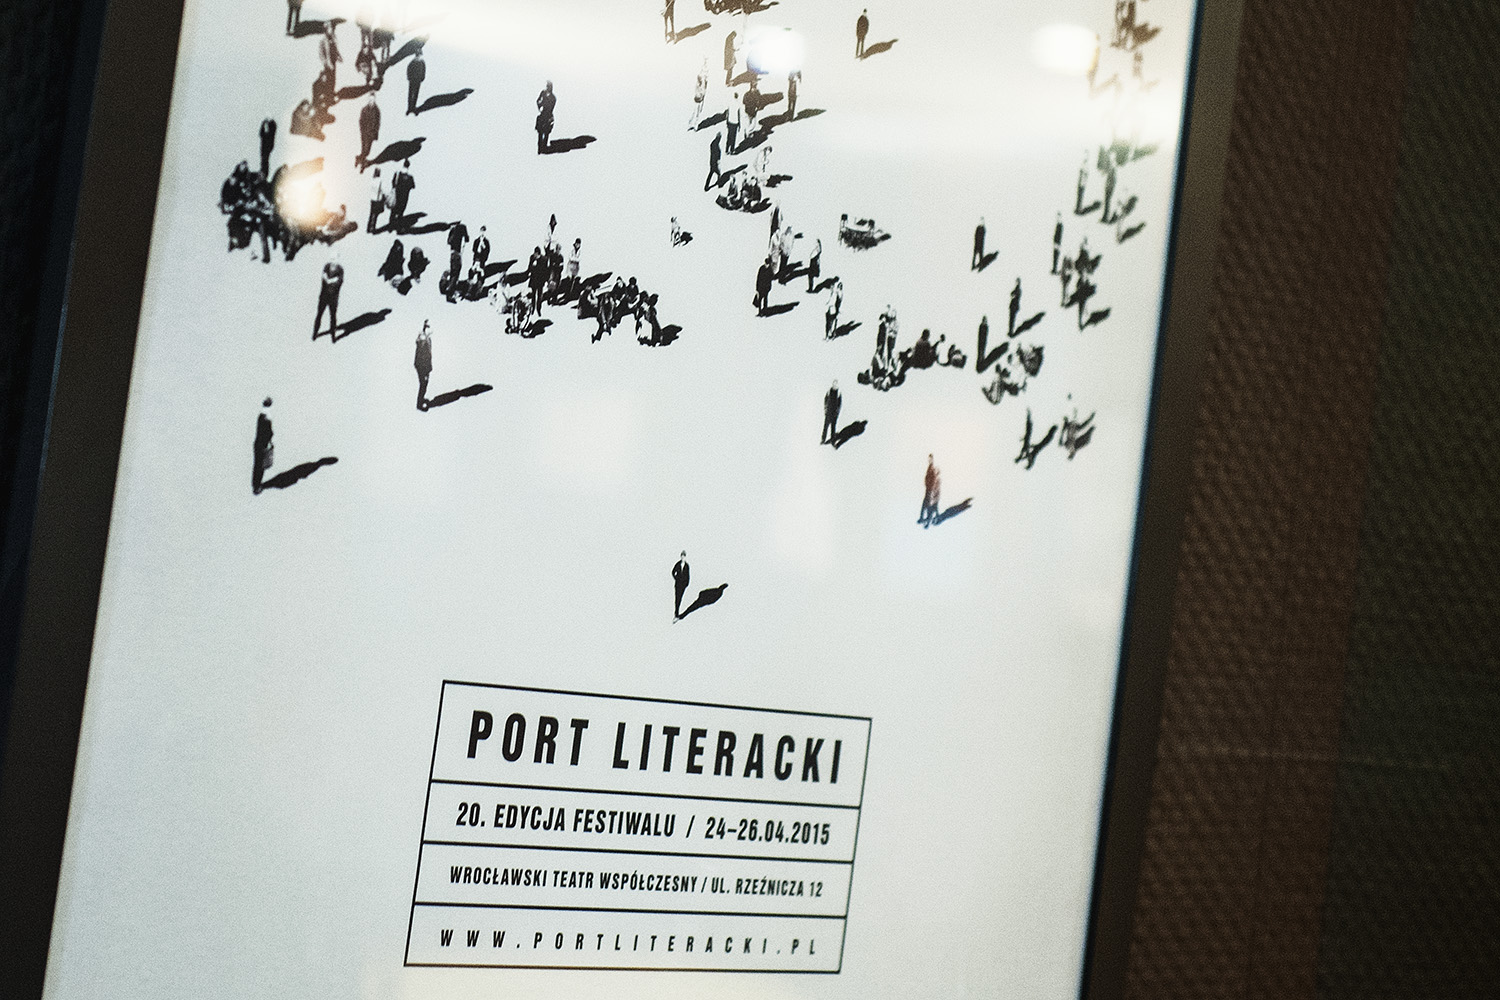 PORT LITERACKI
20. EDYCJA FESTIWALU / 24–26.04.2015
WROCŁAWSKI TEATR WSPÓŁCZESNY / UL. RZEŹNICZA 12
WWW.PORTLITERACKI.PL